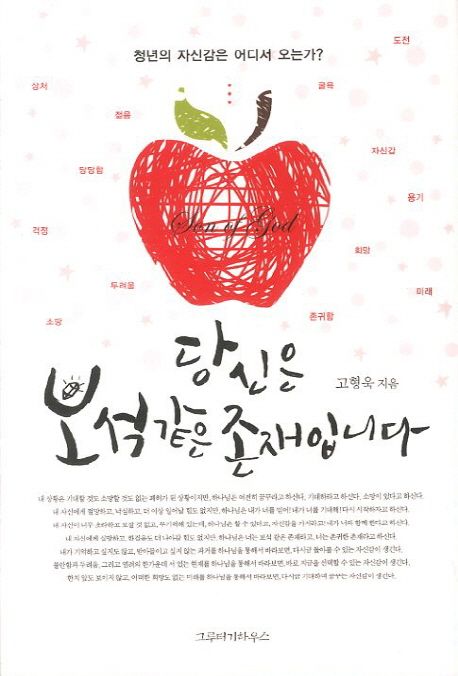 청년의 자신감은 어디서 오는가?
도전
상처
굴욕
젊음
자신감
당당함
용기
걱정
Son of God
희망
두려움
미래
소망
존귀함
당신은
보석 같은 존재입니다
고형욱 지음
내 상황은 기대할 것도 소망할 것도 없는 폐허가 된 상황이지만, 하나님은 여전히 꿈꾸라고 하신다. 기대하라고 하신다. 소망이 있다고 하신다.
내 자신에게 절망하고, 낙심하고, 더 이상 일어날 힘도 없지만, 하나님은 내가 너를 믿어! 내가 너를 기대해! 다시 시작하자고 하신다.
내 자신이 너무 초라하고 보잘 것 없고, 무기력해 있는데, 하나님은 할 수 있다고, 자신감을 가지라고! 내가 너와 함께 한다고 하신다.
내 자신에게 실망하고, 한걸음도 더 나아갈 힘도 없지만, 하나님은 너는 보석 같은 존재라고, 너는 존귀한 존재라고 하신다.
내가 기억하고 싶지도 않고, 받아들이고 싶지 않는 과거를 하나님을 통해서 바라보면, 다시금 돌아볼 수 있는 자신감이 생긴다.
불안함과 두려움, 그리고 염려의 한가운데 서 있는 현재를 하나님을 통해서 바라보면, 바로 지금을 선택할 수 있는 자신감이 생긴다.
한치 앞도 보이지 않고, 어떠한 희망도 없는 미래를 하나님을 통해서 바라보면, 다시금 기대하며 꿈꾸는 자신감이 생긴다.
그루터기하우스